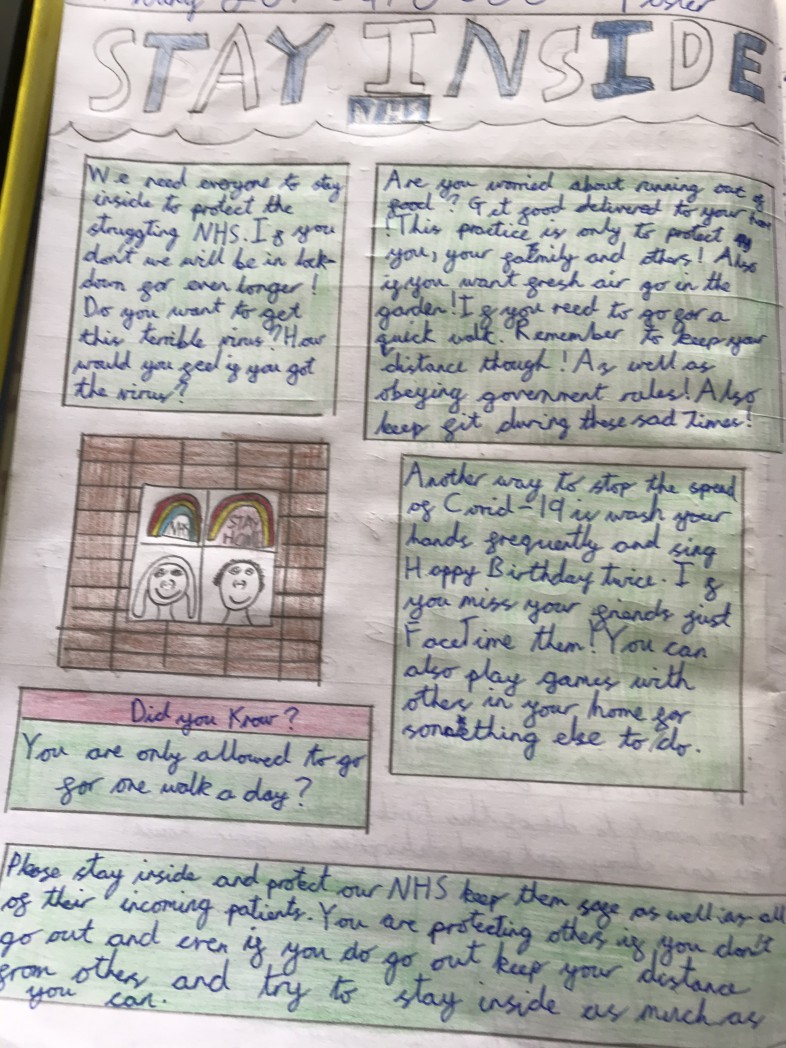 Poster
STAY INSIDE
NHS
We need everyone to stay
inside to protect the
struggting NHS. If you
don't we will be in lock-
down for even longer!
Do you want to get
this terrible virus? How
would you feel if you got
the virus?
Are you worried about running out of
food? Get food delivered to your home
! This practice is only to protect
you, your family and others! Also
if you want fresh air go in the
garden! If you need to go for a
quick walk. Remember to keep your
distance though! As well as
obeying government rules! Also
keep fit during these sad Times!
NHS
STAY
HOME
Another way to stop the spread
of Covid-19 is wash your
hands frequently and sing
Happy Birthday twice. If
you miss your friends just
FaceTime them! You can
also play games with
others in your home for
something else to do.
Did you Know?
You are only allowed to go
for one walk a day?
Please stay inside and protect our NHS keep them safe as well as all
of their incoming patients. You are protecting others if you don't
go out and even if you do go out keep your distance
from others and try to stay inside as much as
you can.